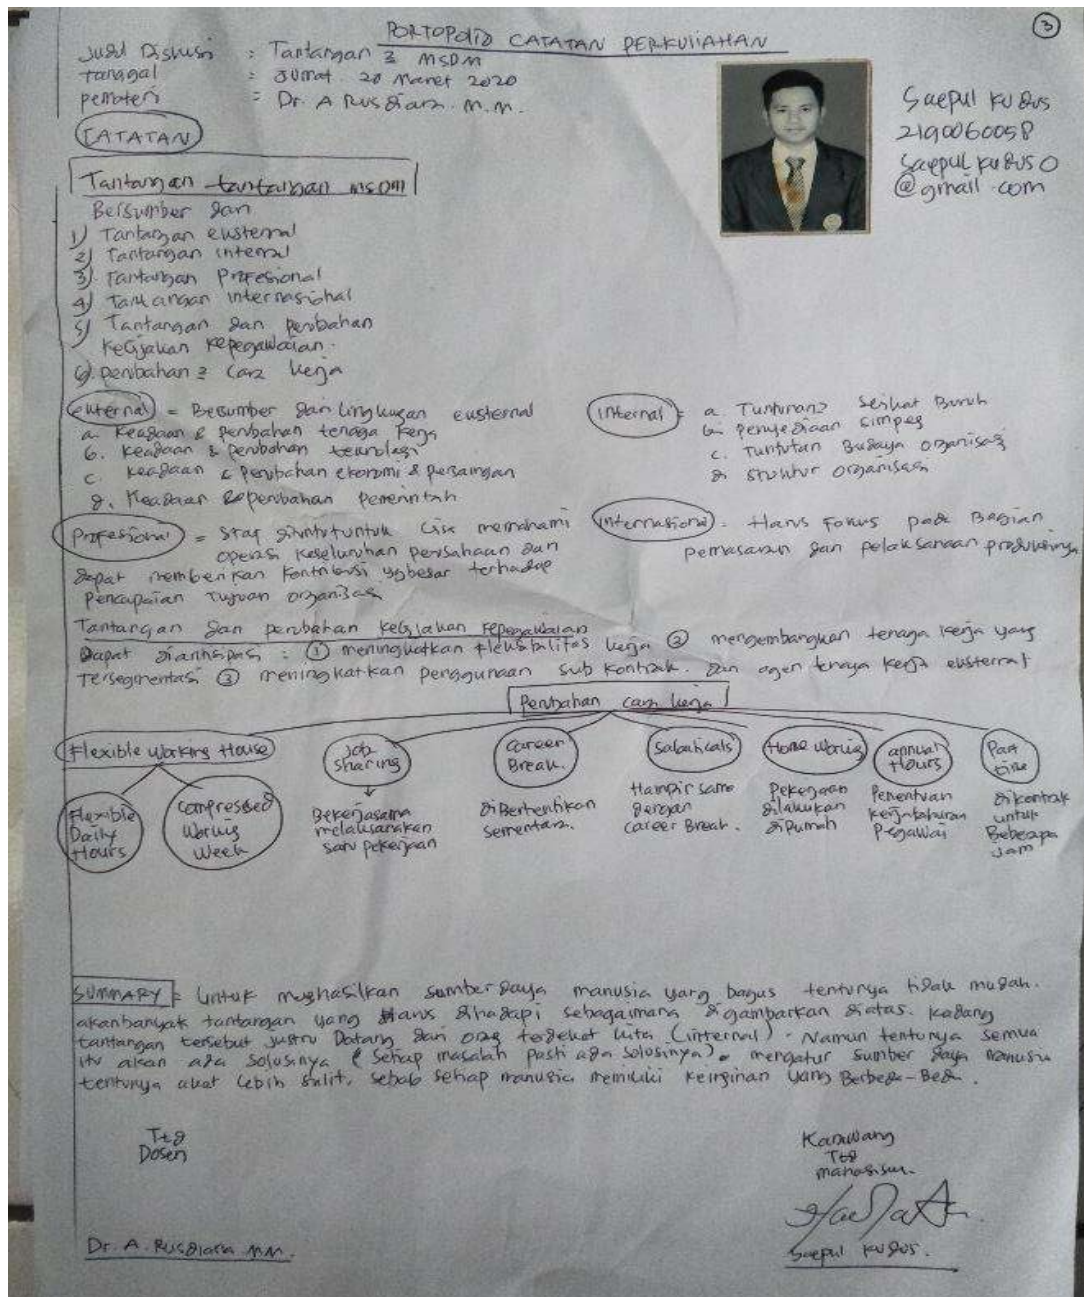 3
PORTOPOLIO CATATAN PERKULIAHAN
Judul Diskusi : Tantangan 2 MSDM
tanggal : Jumat 20 Maret 2020
pemateri : Dr. A Rusdiana. M.M.
Saepul kudus
2190060058
Saepul kudus 0
@gmail.com
CATATAN
Tantangan tantangan MSDM
Bersumber dari
1) Tantangan eksternal
2) Tantangan internal
3) Tantangan Profesional
4) Tantangan internasional
5) Tantangan dan perubahan
kebijakan kepegawaian.
6) perubahan 2 cara kerja
external = Bersumber dari lingkungan eksternal
a. Keadaan & perubahan tenaga kerja
b. Keadaan & perubahan teknologi
c. keadaan & perubahan ekonomi & persaingan
d. Keadaan & perubahan pemerintah
internal = a. Tuntutan2 Serikat Buruh
b. penyediaan simpeg
c. Tuntutan Budaya organisasi
d. struktur organisasi
Profesional = Staf dituntut untuk bisa memahami
operasi keseluruhan perusahaan dan
dapat memberikan kontribusi yg besar terhadap
pencapaian tujuan organisasi
internasional = Harus Fokus pada Bagian
pemasaran dan pelaksanaan produksinya
Tantangan dan perubahan kebijakan kepegawaian
Dapat diantisipasi : ① meningkatkan fleksibilitas kerja ② mengembangkan tenaga kerja yang
Tersegmentasi ③ meningkatkan penggunaan sub kontrak. dan agen tenaga kerja eksternal
Perubahan cara kerja
Flexible Working House
Flexible
Daily
Hours
Compressed
Working
Week
Job
Sharing
Bekerjasama
melaksanakan
satu pekerjaan
Career
Break.
diberhentikan
sementara.
Sabaticals
Hampir sama
dengan
career Break.
Home Working
Pekerjaan
dilakukan
dirumah
annual
Hours
Penentuan
kerja tahunan
Pegawai
Part
time
dikontrak
untuk
Beberapa
Jam
SUMMARY = Untuk menghasilkan sumber daya manusia yang bagus tentunya tidak mudah.
akan banyak tantangan yang Harus dihadapi sebagaimana digambarkan diatas. Kadang
tantangan tersebut justru Datang dari orang terdekat kita (internal). Namun tentunya semua
itu akan ada solusinya (setiap masalah pasti ada solusinya). mengatur sumber daya manusia
tentunya akat lebih sulit, sebab setiap manusia memiliki keinginan yang Berbeda-Beda.
Ttd
Dosen
Dr. A. Rusdiana MM.
Karawang
Ttd
mahasiswa
Saepul kudus.